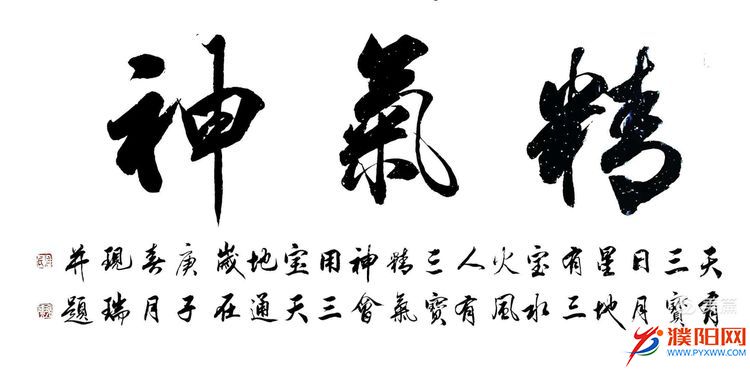 精氣神
天有
三寶
日月
星地
有三
宝水
火風
人有
三寶
精氣
神會
用三
宝天
地通
歲在
庚子
春月
現瑞
并題
美篇
濮阳网
WWW.PYXWW.COM